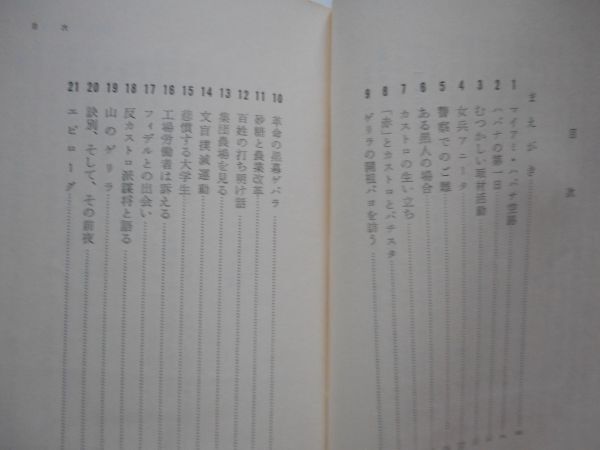 目次
まえがき
1 マイアミ・ハバナ空路
2 ハバナの第一日
3 むつかしい取材活動
4 女兵アニータ
5 警察でのご難
6 ある黒人の場合
7 カストロの生い立ち
8 「赤」とカストロとバチスタ
9 ゲリラの開祖バヨを訪う
目次
10 革命の黒幕ゲバラ
11 砂糖と農業改革
12 百姓の打ち明け話
13 集団農場を見る
14 文盲撲滅運動
15 悲憤する大学生
16 工場労働者は訴える
17 フィデルとの出会い
18 反カストロ派謀将と語る
19 山のゲリラ
20 訣別、そして、その前夜
21 エピローグ